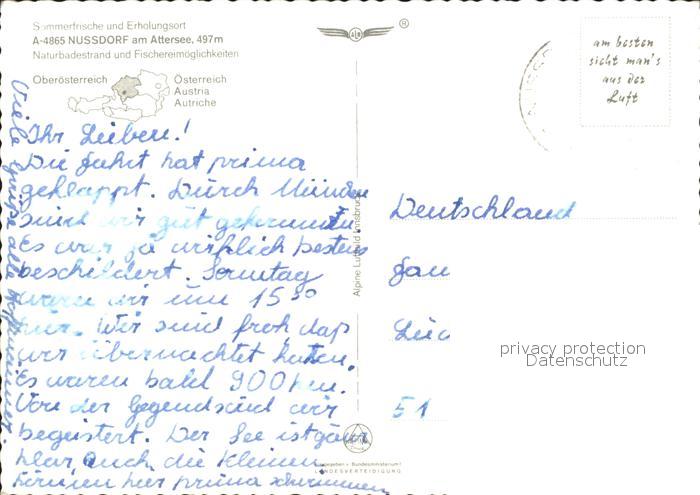 Sommerfrische und Erholungsort
A-4865 NUSSDORF am Attersee, 497m
Naturbadestrand und Fischereimöglichkeiten
Oberösterreich
Österreich
Austria
Autriche
®
am besten
sieht man's
aus der
Luft
Ihr Lieben!
Die Fahrt hat prima
geklappt. Durch München
sind wir gut gekommen.
Es war ja wirklich bestens
beschildert. Sonntag
waren wir um 15 30
hier. Wir sind froh daß
wir übernachtet hatten.
Es waren bald 900 km.
Von der Gegend sind wir
begeistert. Der See ist ganz
klar, auch die Kleinen
können hier prima schwimmen
Viele Grüße
Alpine Luftbild Innsbruck
Deutschland
Fam
51
privacy protection
Datenschutz